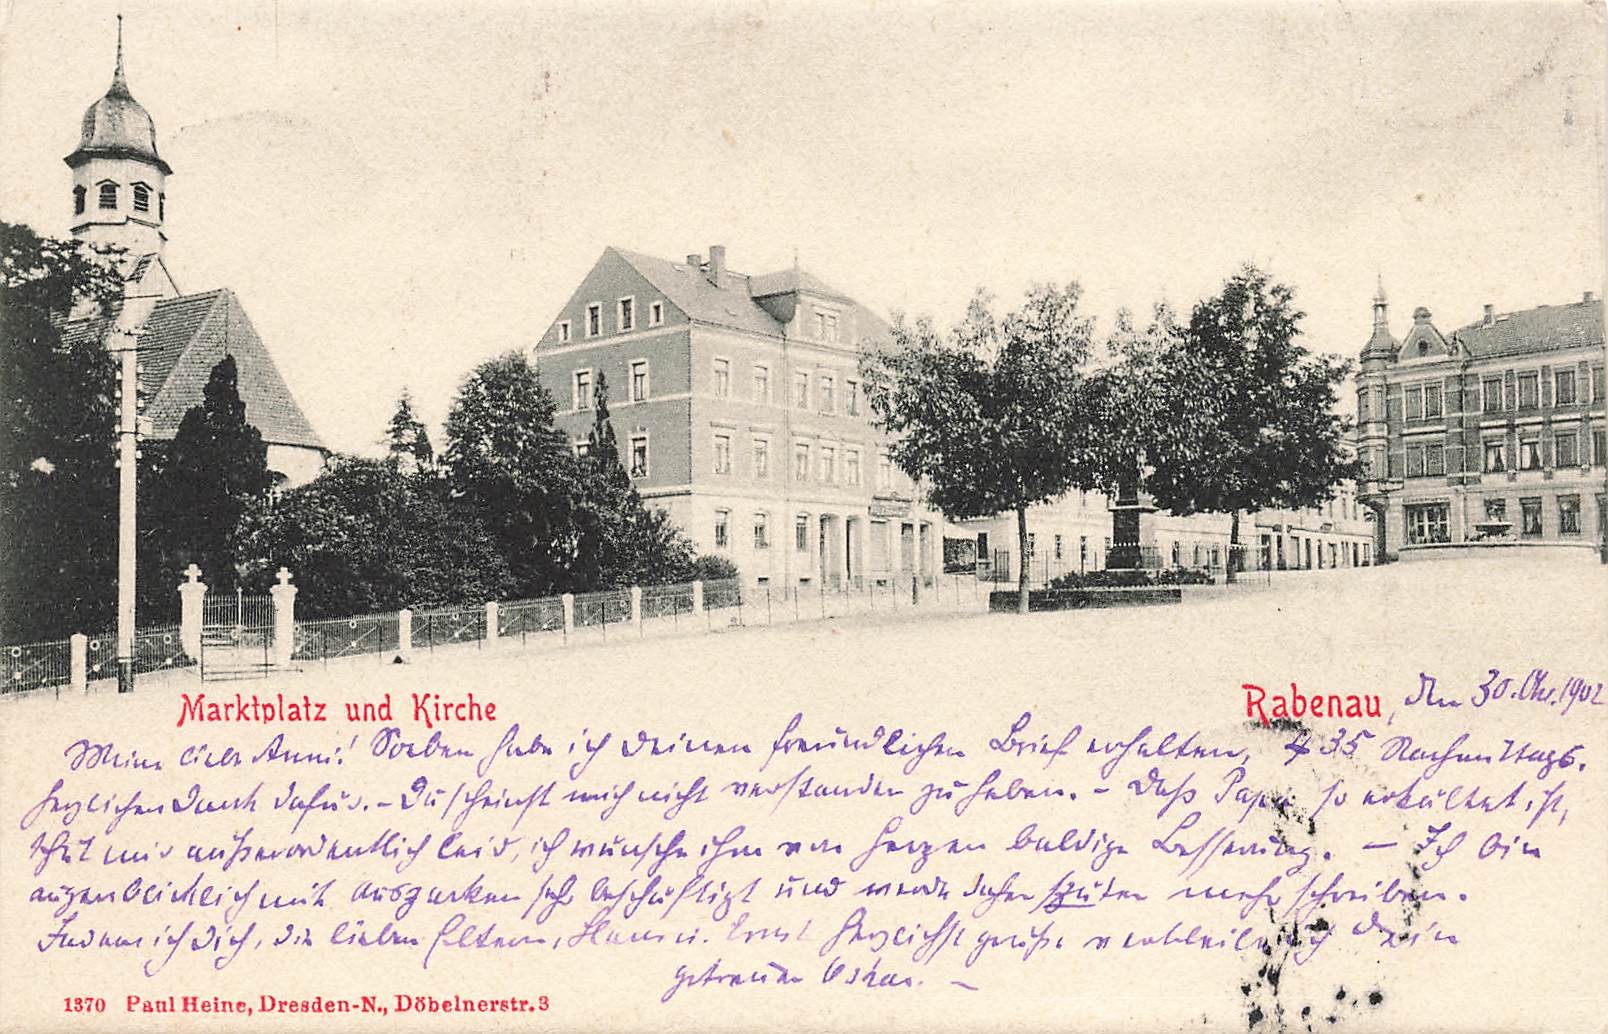 Marktplatz und Kirche
Rabenau, den 30. Okt. 1902
Meine liebe Anni! Soeben habe ich deinen freundlichen Brief erhalten, 4 35 Nachmittags.
herzlichen Dank dafür. – Du scheinst mich nicht verstanden zu haben. – Daß Papa so erkältet ist,
thut mir außerordentlich leid, ich wünsche ihm von Herzen baldige Besserung. – Ich bin
augenblicklich mit sehr beschäftigt und werde daher später mehr schreiben.
Indem ich Dich, die lieben Eltern, Hans u. Ernst herzlichst grüße verbleibe ich Dein
getreuer Oskar. –
1370 Paul Heine, Dresden-N., Döbelnerstr. 3